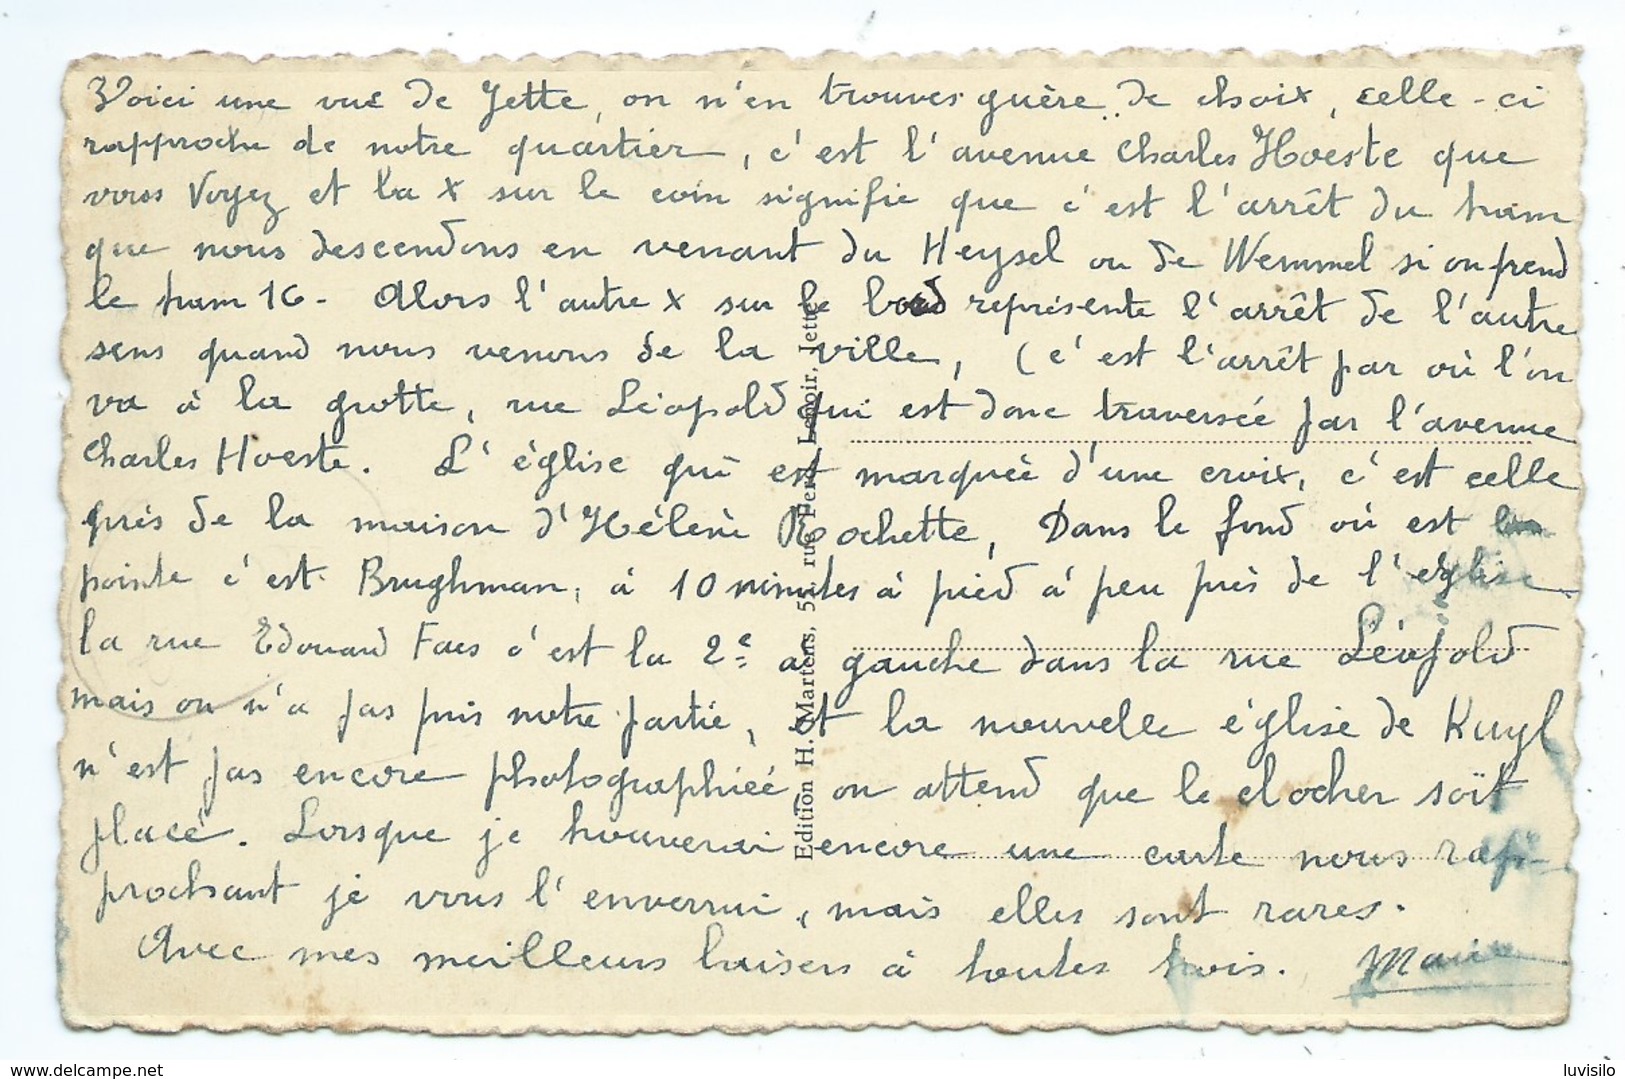 Voici une vue de Jette, on n'en trouves guère de choix, celle-ci
rapproche de notre quartier, c'est l'avenue Charles Hoeste que
vous Voyez et la x sur le coin signifie que c'est l'arrêt du tram
que nous descendons en venant du Heysel ou de Wemmel si on prend
le tram 16 - Alors l'autre x sur le bord représente l'arrêt de l'autre
sens quand nous venons de la ville, (c'est l'arrêt par où l'on
va à la grotte, rue Léopold qui est donc traversée par l'avenue
Charles Hoeste. L'église qui est marquée d'une croix, c'est celle
près de la maison d'Hélène Rochette, Dans le fond où est la
pointe c'est Brughman, à 10 minutes à pied à peu près de l'église
la rue Edouard Faes c'est la 2e à gauche dans la rue Léopold
mais on n'a pas pris notre partie, et la nouvelle église de Kuyl
n'est pas encore photographiée on attend que le clocher soit
placé. Lorsque je trouverai encore une carte nous rap-
prochant je vous l'enverrai, mais elles sont rares.
Avec mes meilleurs baisers à toutes trois. Marie
Edition H. Martens, rue Ferd. Lenoir, Jette
luvisilo
delcampe.net